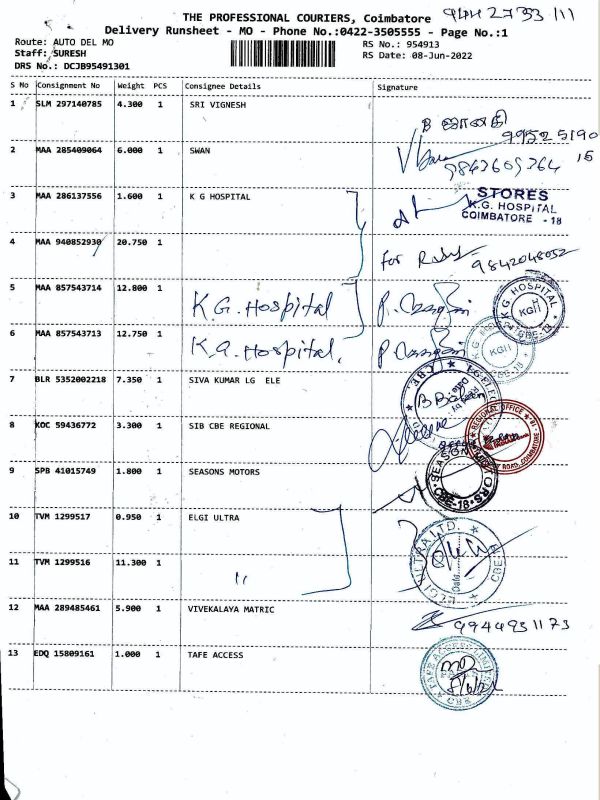 THE PROFESSIONAL COURIERS, Coimbatore
Delivery Runsheet - MO - Phone No.:0422-3505555 - Page No.:1
Route: AUTO DEL MO
RS No.: 954913
Staff: SURESH
RS Date: 08-Jun-2022
DRS No.: DCJB95491301
S No Consignment No Weight PCS Consignee Details Signature
1 SLM 297140785 4.300 1 SRI VIGNESH
B ஜானகி
2 MAA 285409064 6.000 1 SWAN
9843609364
3 MAA 286137556 1.600 1 K G HOSPITAL
STORES
K.G. HOSPITAL
COIMBATORE - 18
4 MAA 940852930 20.750 1
For
9842048052
5 MAA 857543714 12.800 1 K.G. Hospital
K.G. HOSPITAL
KGH
CBE-18
6 MAA 857543713 12.750 1 K.G. Hospital.
KGH
7 BLR 5352002218 7.350 1 SIVA KUMAR LG ELE
8 KOC 59436772 3.300 1 SIB CBE REGIONAL
REGIONAL OFFICE
ROAD, COIMBATORE
9 SPB 41015749 1.800 1 SEASONS MOTORS
SEASONS MOTORS
CBE-18
10 TVM 1299517 0.950 1 ELGI ULTRA
ELGI ULTRA LTD.
Date
CBE
11 TVM 1299516 11.300 1 "
12 MAA 289485461 5.900 1 VIVEKALAYA MATRIC
9944931173
13 EDQ 15809161 1.000 1 TAFE ACCESS
TAFE ACCESS LIMITED